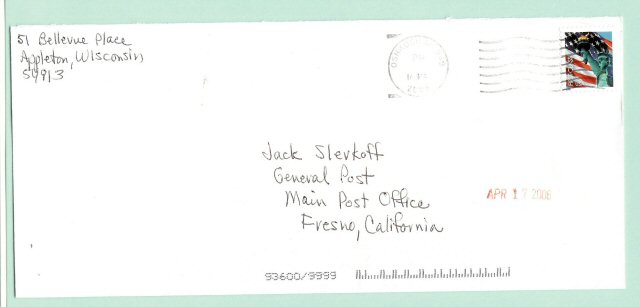 51 Bellevue Place
Appleton, Wisconsin
54913
Jack Slevkoff
General Post
Main Post Office
Fresno, California
APR 17 2006
93600/9999